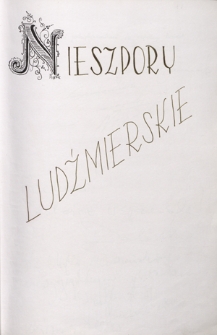 NIESZPORY
LUDŹMIERSKIE